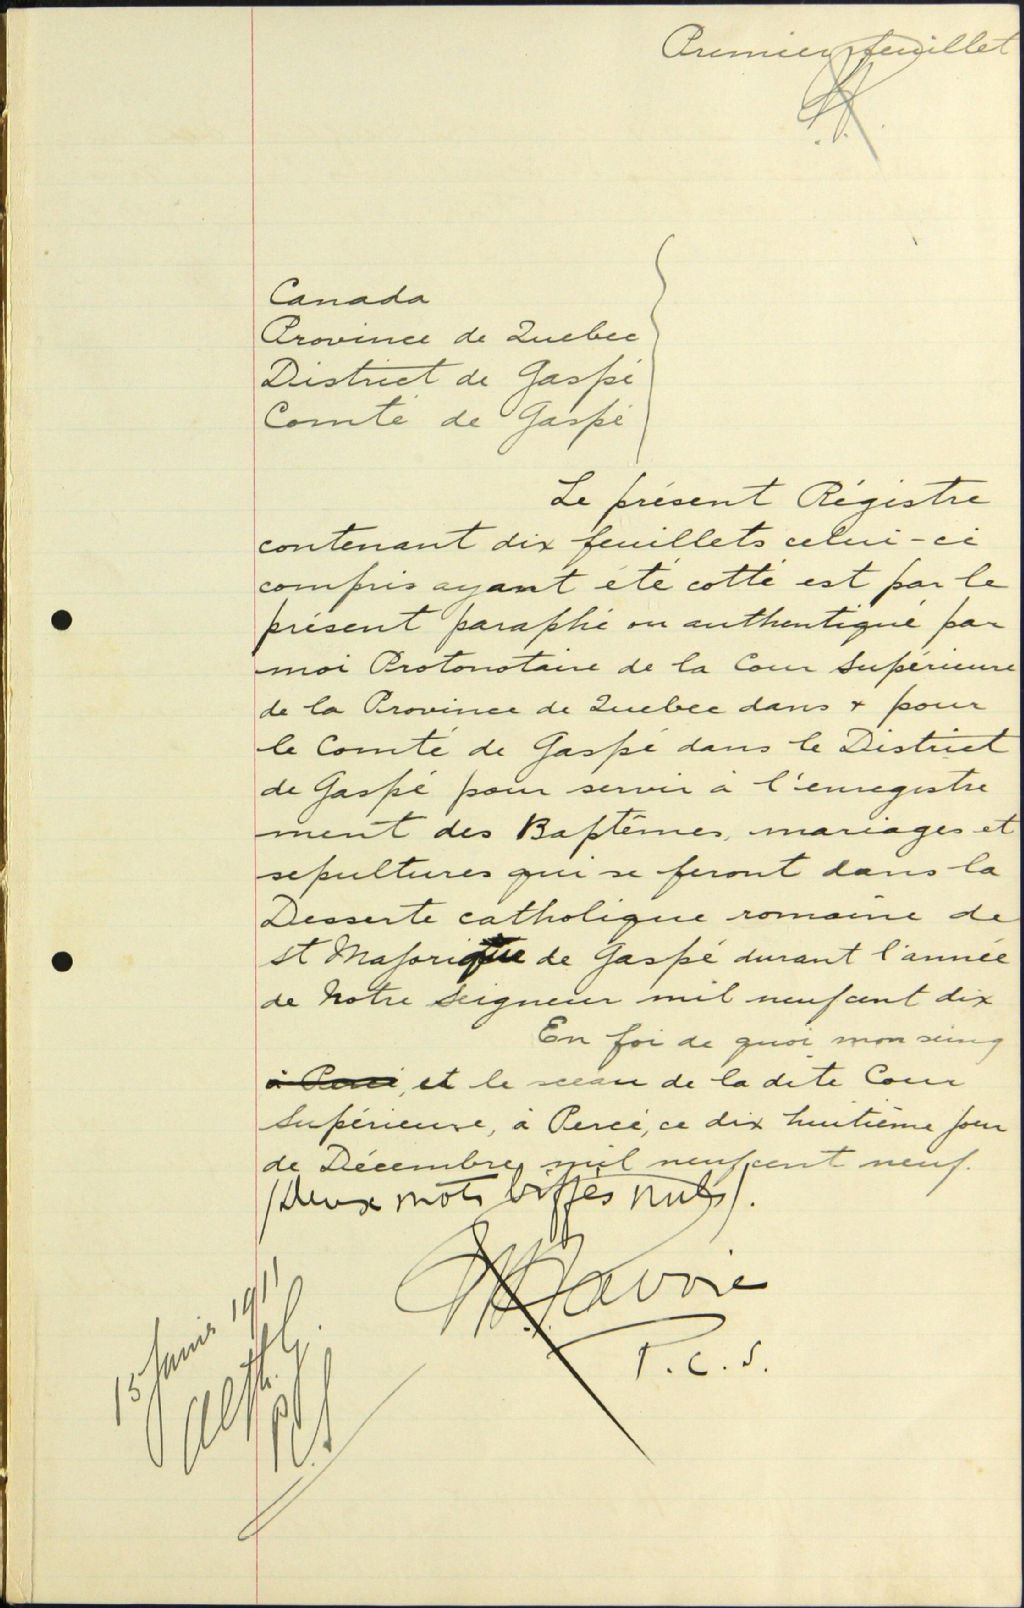 Premier feuillet
Canada
Province de Quebec
District de Gaspé
Comté de Gaspé
Le présent Régistre
contenant dix feuillets celui-ci
compris ayant été cotté est par le
présent paraphé ou authentiqué par
moi Protonotaire de la Cour Supérieure
de la Province de Quebec dans + pour
le Comté de Gaspé dans le District
de Gaspé pour servir à l'enregistre
ment des Baptêmes, mariages et
sepultures qui se feront dans la
Desserte catholique romaine de
St Majorique de Gaspé durant l'année
de Notre Seigneur mil neufcent dix
En foi de quoi mon seing
à Percé, et le sceau de la dite Cour
Supérieure, à Percé, ce dix huitième jour
de Décembre mil neufcent neuf.
(Deux mots biffés nuls).
Lavoie
P.C.S.
15 Janvier 1911